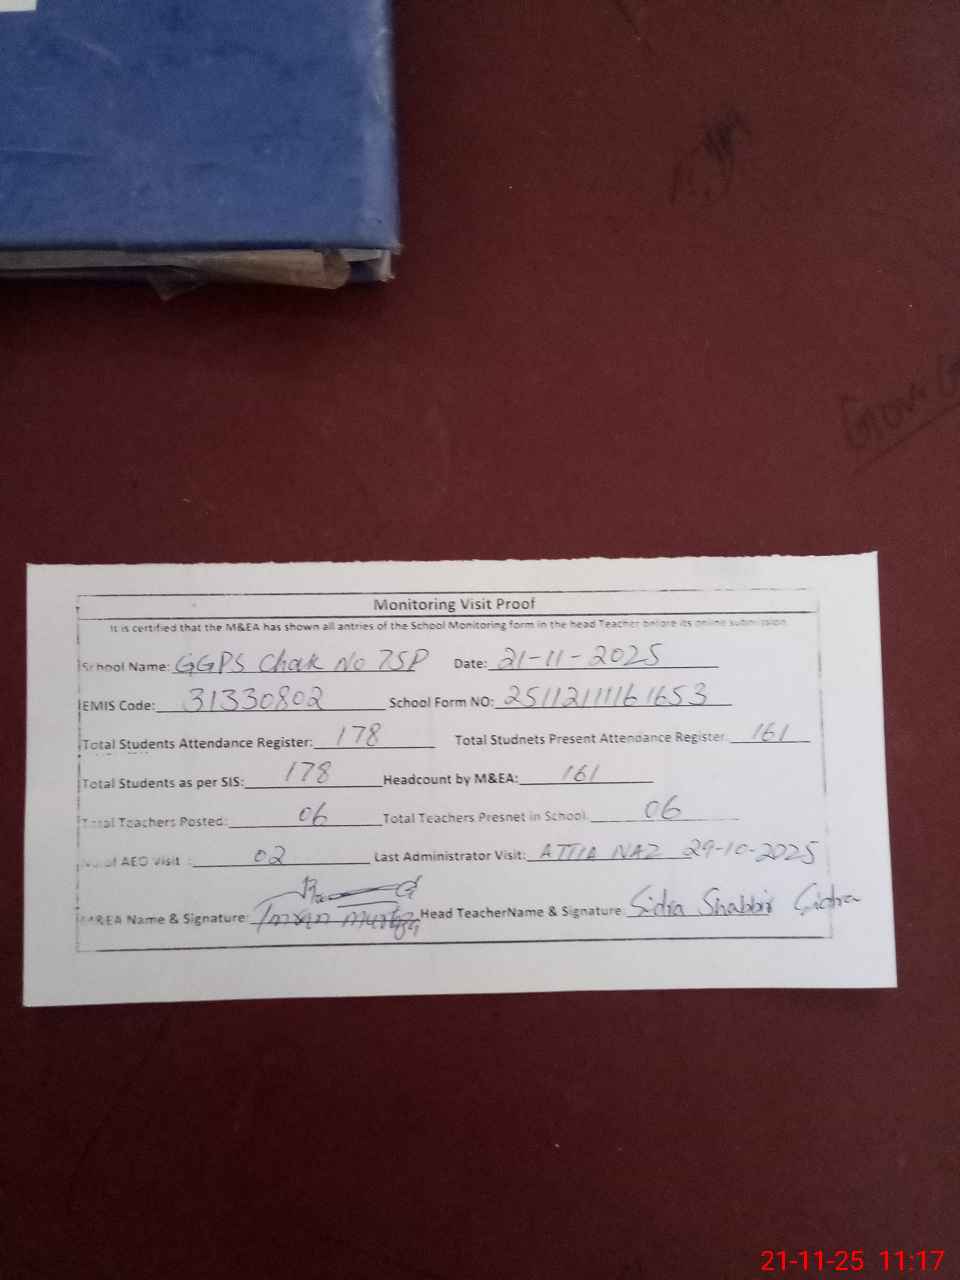 Gov.
Monitoring Visit Proof
It is certified that the M&EA has shown all antries of the School Monitoring form in the head Teacher before its online submission
School Name: GGPS Chak No 75P Date: 21-11-2025
EMIS Code: 31330802 School Form NO: 25112111161653
Total Students Attendance Register: 178 Total Studnets Present Attendance Register: 161
Total Students as per SIS: 178 Headcount by M&EA: 161
Total Teachers Posted: 06 Total Teachers Presnet in School. 06
No of AEO Visit : 02 Last Administrator Visit: ATTIA NAZ 29-10-2025
M&EA Name & Signature: Imran Murtaza Head TeacherName & Signature: Sidra Shabbir Sidra
21-11-25 11:17